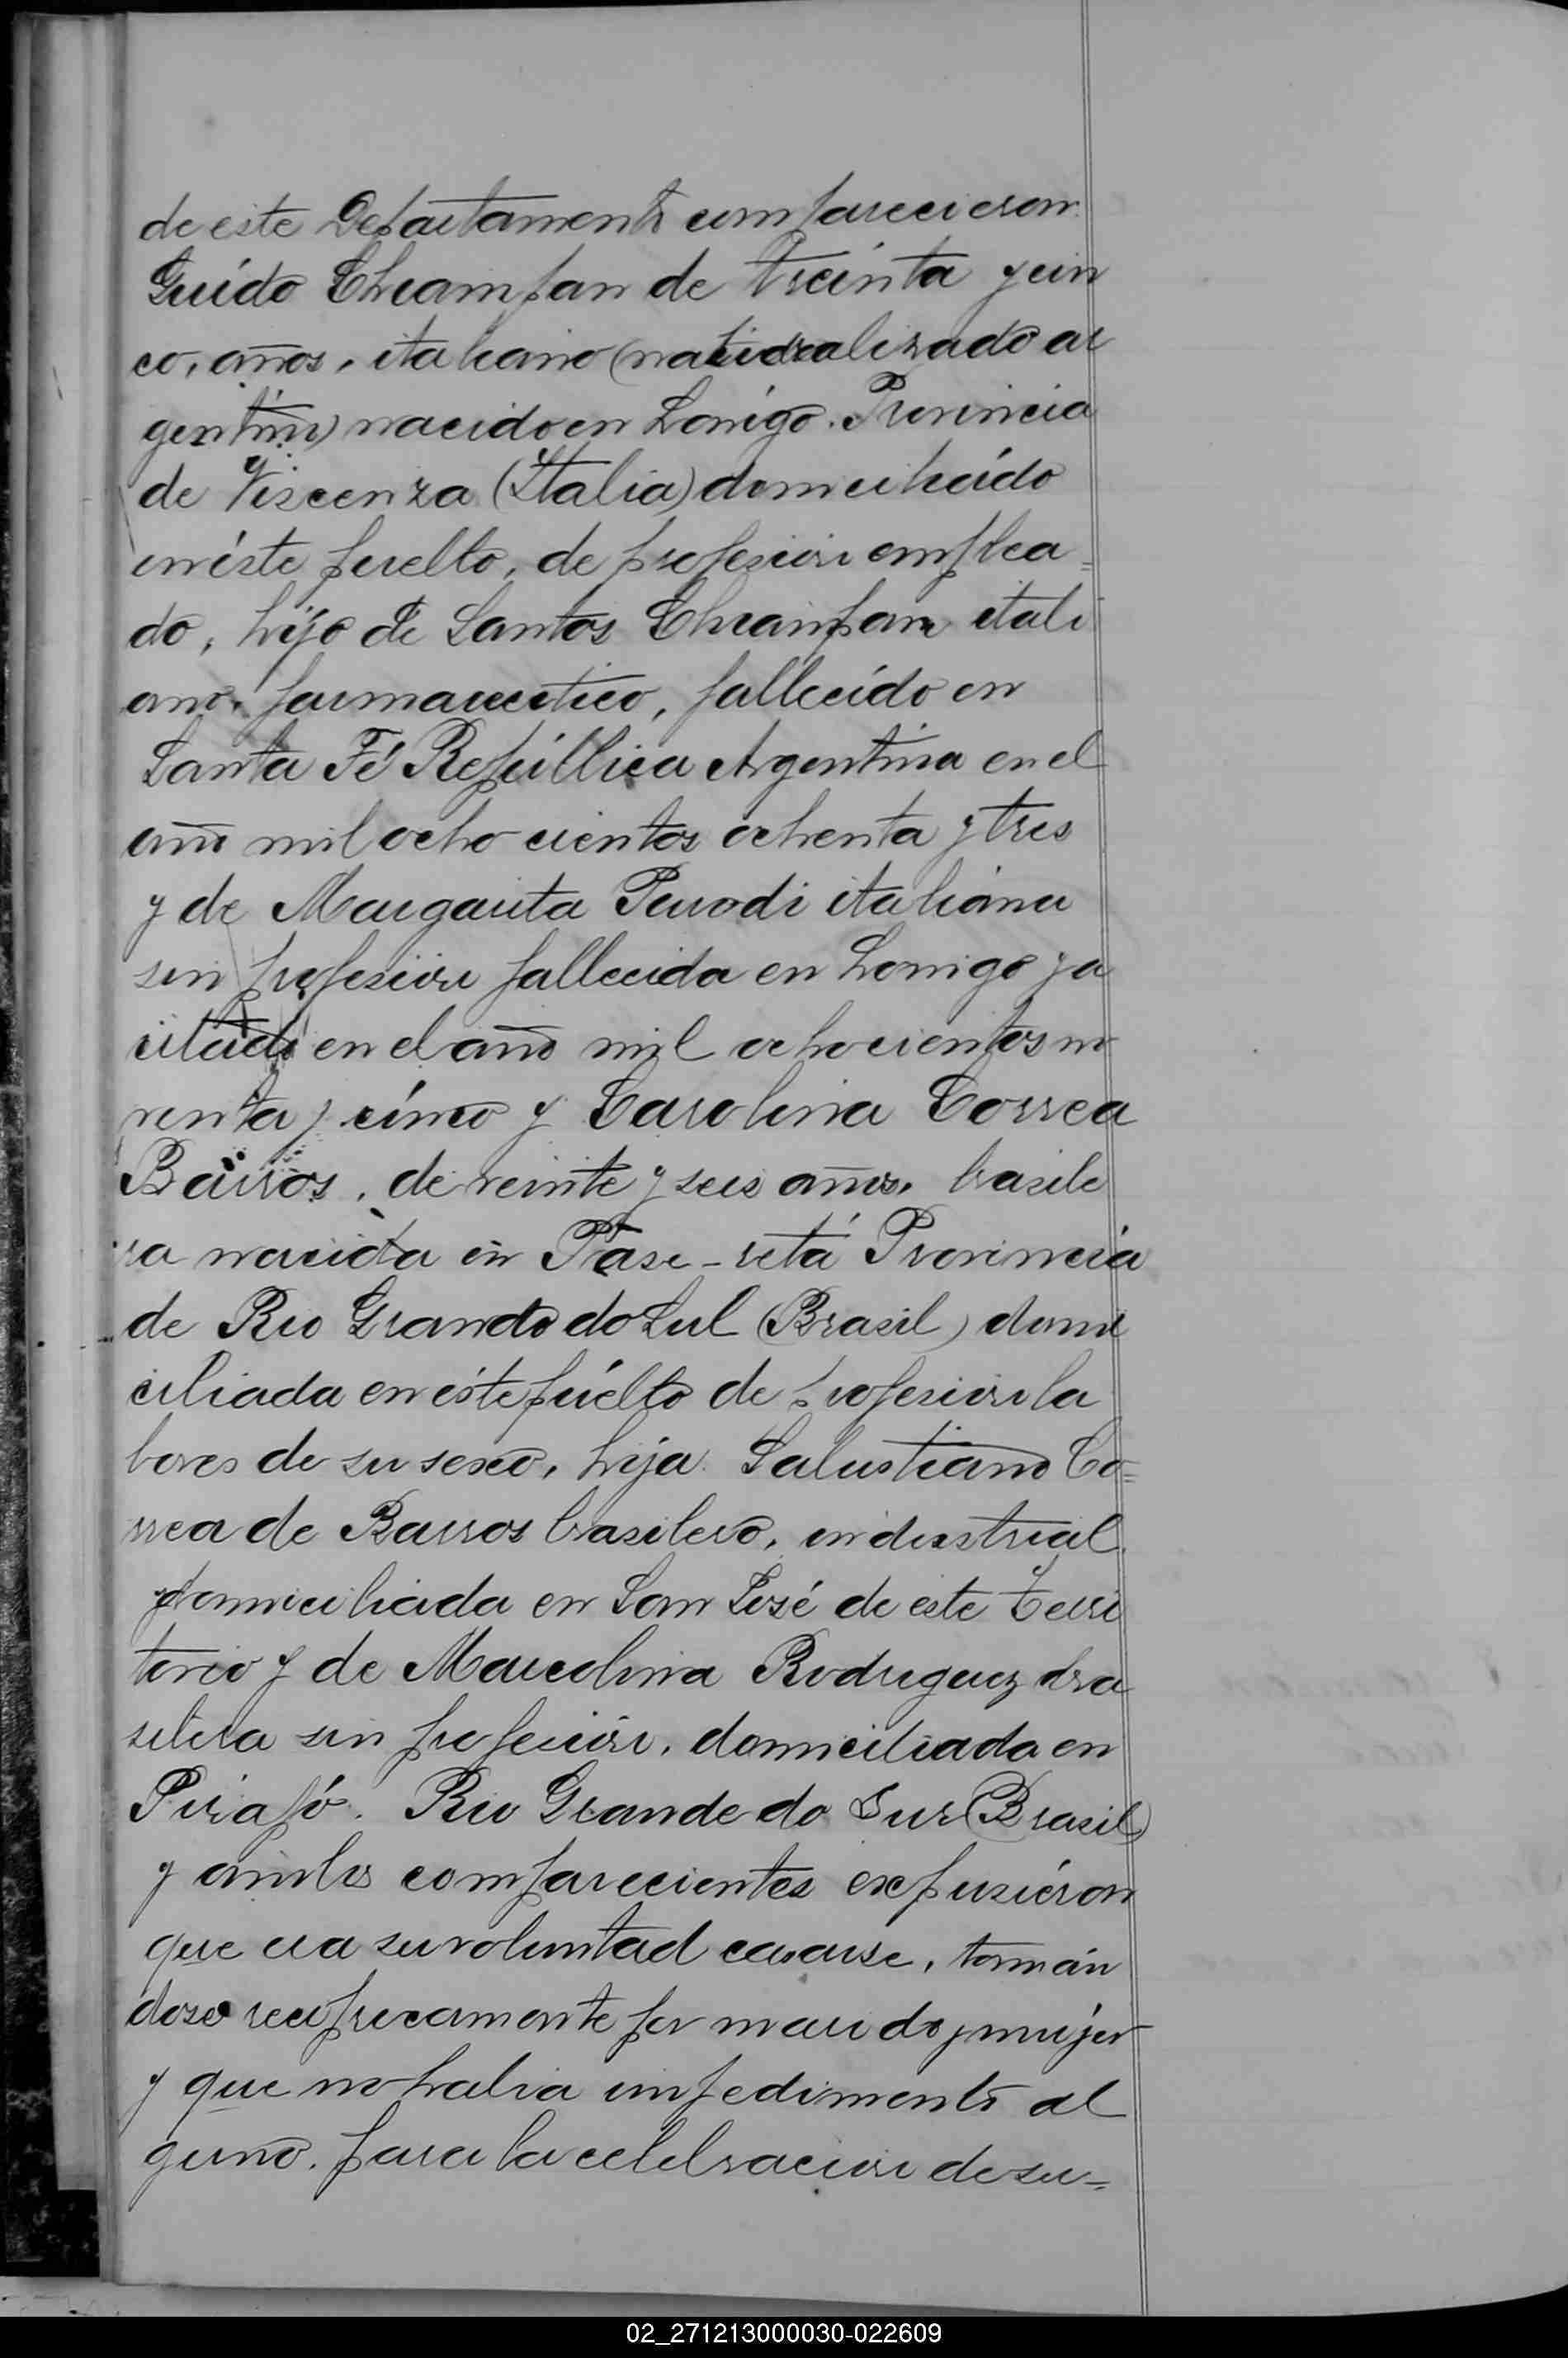 de este Departamento comparecieron
Guido Chiampan de treinta y cin
co, años, italiano (naturalizado ar
gentino) nacido en Lonigo. Provincia
de Viscenza (Italia) domiciliado
en éste pueblo, de profesion emplea=
do, hijo de Santos Chiampan itali
ano, farmaceutico, fallecido en
Santa Fé República Argentina en el
año mil ocho cientos ochenta y tres
y de Margarita Parodi italiana
sin profesion fallecida en Lonigo ya
citado en el año mil ochocientos no
venta y cinco y Carolina Correa
Barros, de veinte y seis años, brasile
ra nacida en Pase-retá Provincia
de Rio Grande do Sul (Brasil) domi
ciliada en éste púeblo de profesion la
bores de su sexo, hija Salustiano Co=
rrea de Barros brasilero, industrial
domiciliada en San José de este Terri
torio y de Marcolina Rodriguez bra
silera sin profesion, domiciliada en
Pirapó. Rio Grande do Sur (Brasil)
y ambos comparecientes expusiéron
que era su voluntad casarse, tomán
dose reciprocamente por marido y mujer
y que no habia impedimento al
guno. para la celebracion de su=
02_271213000030-022609